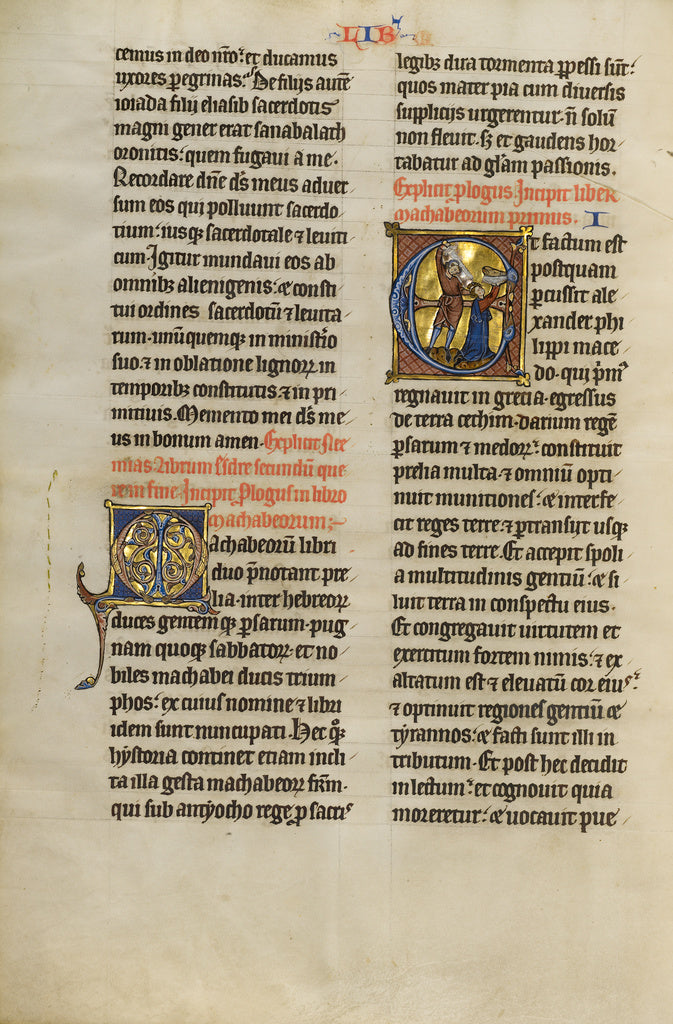 LIB
cemus in deo nr̄o: et ducamus
uxores peregrinas: De filijs autē
ioiada filij eliasib sacerdotis
magni gener erat sanabalath
oronitis: quem fugaui a me.
Recordare dn̄e ds̄ meus aduer
sum eos qui polluunt sacerdo
tium: iusqꝫ sacerdotale ⁊ leuiti
cum. Igitur mundaui eos ab
omnibꝫ alienigenis: ⁊ consti
tui ordines sacerdotū ⁊ leuita
rum. unū quemqꝫ in ministr̄io
suo. ⁊ in oblatione lignoꝝ in
temporibꝫ constitutis. ⁊ in pri
mitiuis. Memento mei ds̄ me
us in bonum amen. Explicit Nee
mias. librum Esdre secundū que
rem fine. Incipit Plogus in libro
machabeorum;
Machabeorū libri
duo p̄notant pre
lia. inter hebreoꝝ
duces gentemqꝫ ꝑsarum. pug
nam quoqꝫ sabbatoꝝ. et no
biles machabei ducis trium
phos: ex cuius nomine ⁊ libri
idem sunt nuncupati. Hec qͦꝫ
hystoria continet etiam incli
ta illa gesta machabeoꝝ fr̄m.
qui sub antyocho rege ꝓ sacris
legibꝫ dira tormenta ꝑpessi sūt:
quos mater pia cum diuersis
supplicijs urgerentur. n̄ solū
non fleuit. sꝫ et gaudens hor
tabatur ad gl̄am passionis.
Explicit plogus. Incipit liber
machabeorum primus. I
Et factum est
postquam
ꝑcussit ale
xander phi
lippi mace
do. qui p̄m͛
regnauit in grecia. egressus
de terra cethim. darium regē
ꝑsarum ⁊ medoꝝ: constituit
prelia multa. ⁊ omniū opti
nuit munitiones: ⁊ interfe
cit reges terre. ⁊ ꝑtransijt usqꝫ
ad fines terre. Et accepit spoli
a multitudinis gentiū: ⁊ si
luit terra in conspectu eius.
Et congregauit uirtutem et
exercitum fortem nimis: ⁊ ex
altatum est ⁊ eleuatū cor eius:
⁊ optinuit regiones gentiū ⁊
tyrannos: ⁊ facti sunt illi in
tributum. Et post hec decidit
in lectum: et cognouit quia
moreretur: ⁊ uocauit pue